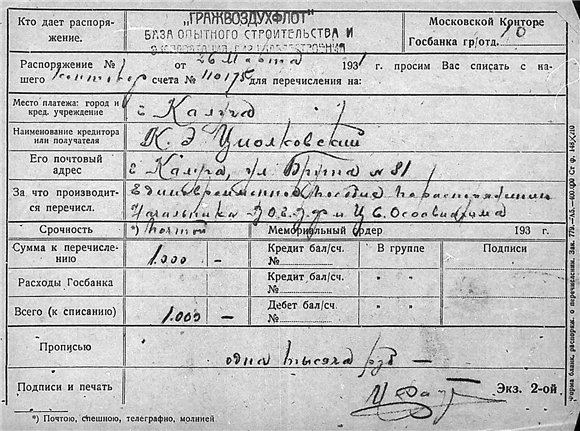 Кто дает распоря-
жение.
„ГРАЖВОЗДУХФЛОТ"
БАЗА ОПЫТНОГО СТРОИТЕЛЬСТВА И
Московской Конторе
Госбанка гр/отд.
Распоряжение № от 26 Марта 1931 г. просим Вас списать с на-
шего счета № 110175 для перечисления на:
Место платежа: город и
кред. учреждение
г Калуга
Наименование кредитора
или получателя
К. Э Циолковский
Его почтовый
адрес
г Калуга, ул Брута № 81
За что производит-
ся перечисл.
Единовременное пособие по распоряжению
Начальника и Ц С. Осоавиахима
Срочность *) почтой Мемориальный ордер 193 г.
Сумма к перечисле-
нию
1.000 —
Кредит бал/сч.
№
В группе
Подписи
Расходы Госбанка
Кредит бал/сч.
№
" "
Всего (к списанию)
1.000 —
Дебет бал/сч.
№
" "
Прописью
одна тысяча руб —
Подписи и печать
Экз. 2-ой.
*) Почтою, спешною, телеграфно, молнией
Форма бланк. распоряж. о перечислении. Зак. 779.